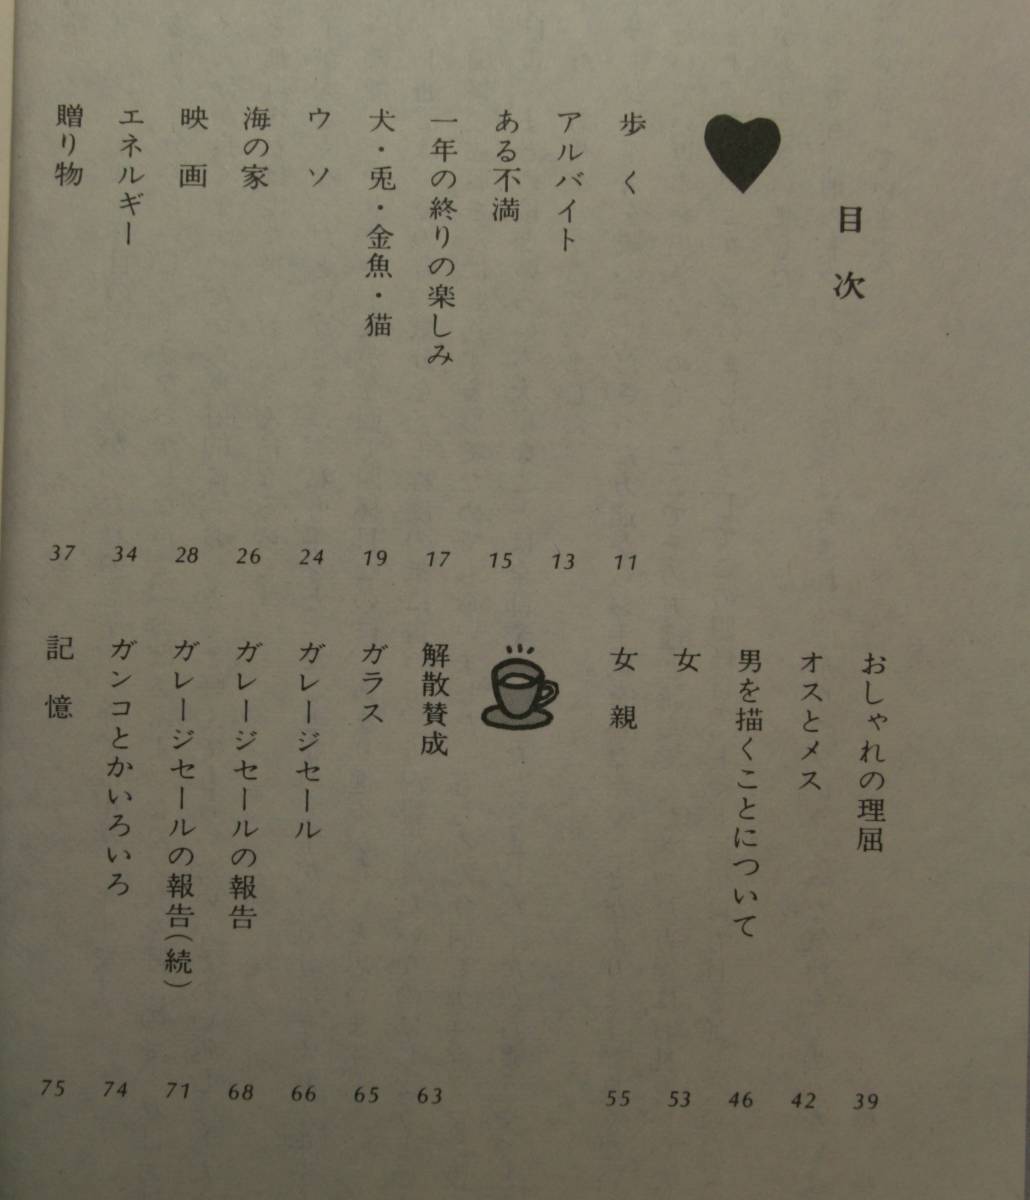 目次
歩く 11
アルバイト 13
ある不満 15
一年の終りの楽しみ 17
犬・兎・金魚・猫 19
ウソ 24
海の家 26
映画 28
エネルギー 34
贈り物 37
おしゃれの理屈 39
オスとメス 42
男を描くことについて 46
女 53
女親 55
解散賛成 63
ガラス 65
ガレージセール 66
ガレージセールの報告 68
ガレージセールの報告(続) 71
ガンコとかいろいろ 74
記憶 75